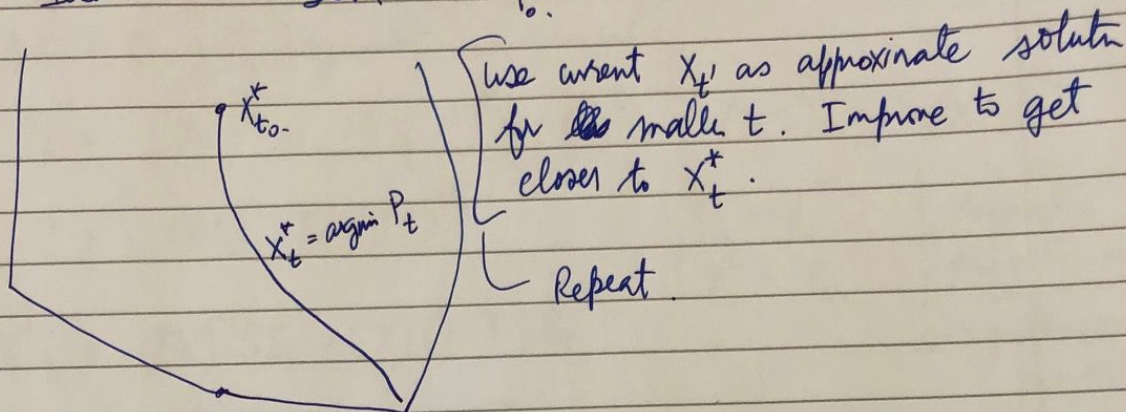 X*_{t_0}
X*_t = argmin P_t
use current X_t' as approximate solutn
for smaller t. Improve to get
closer to X*_t.
Repeat.